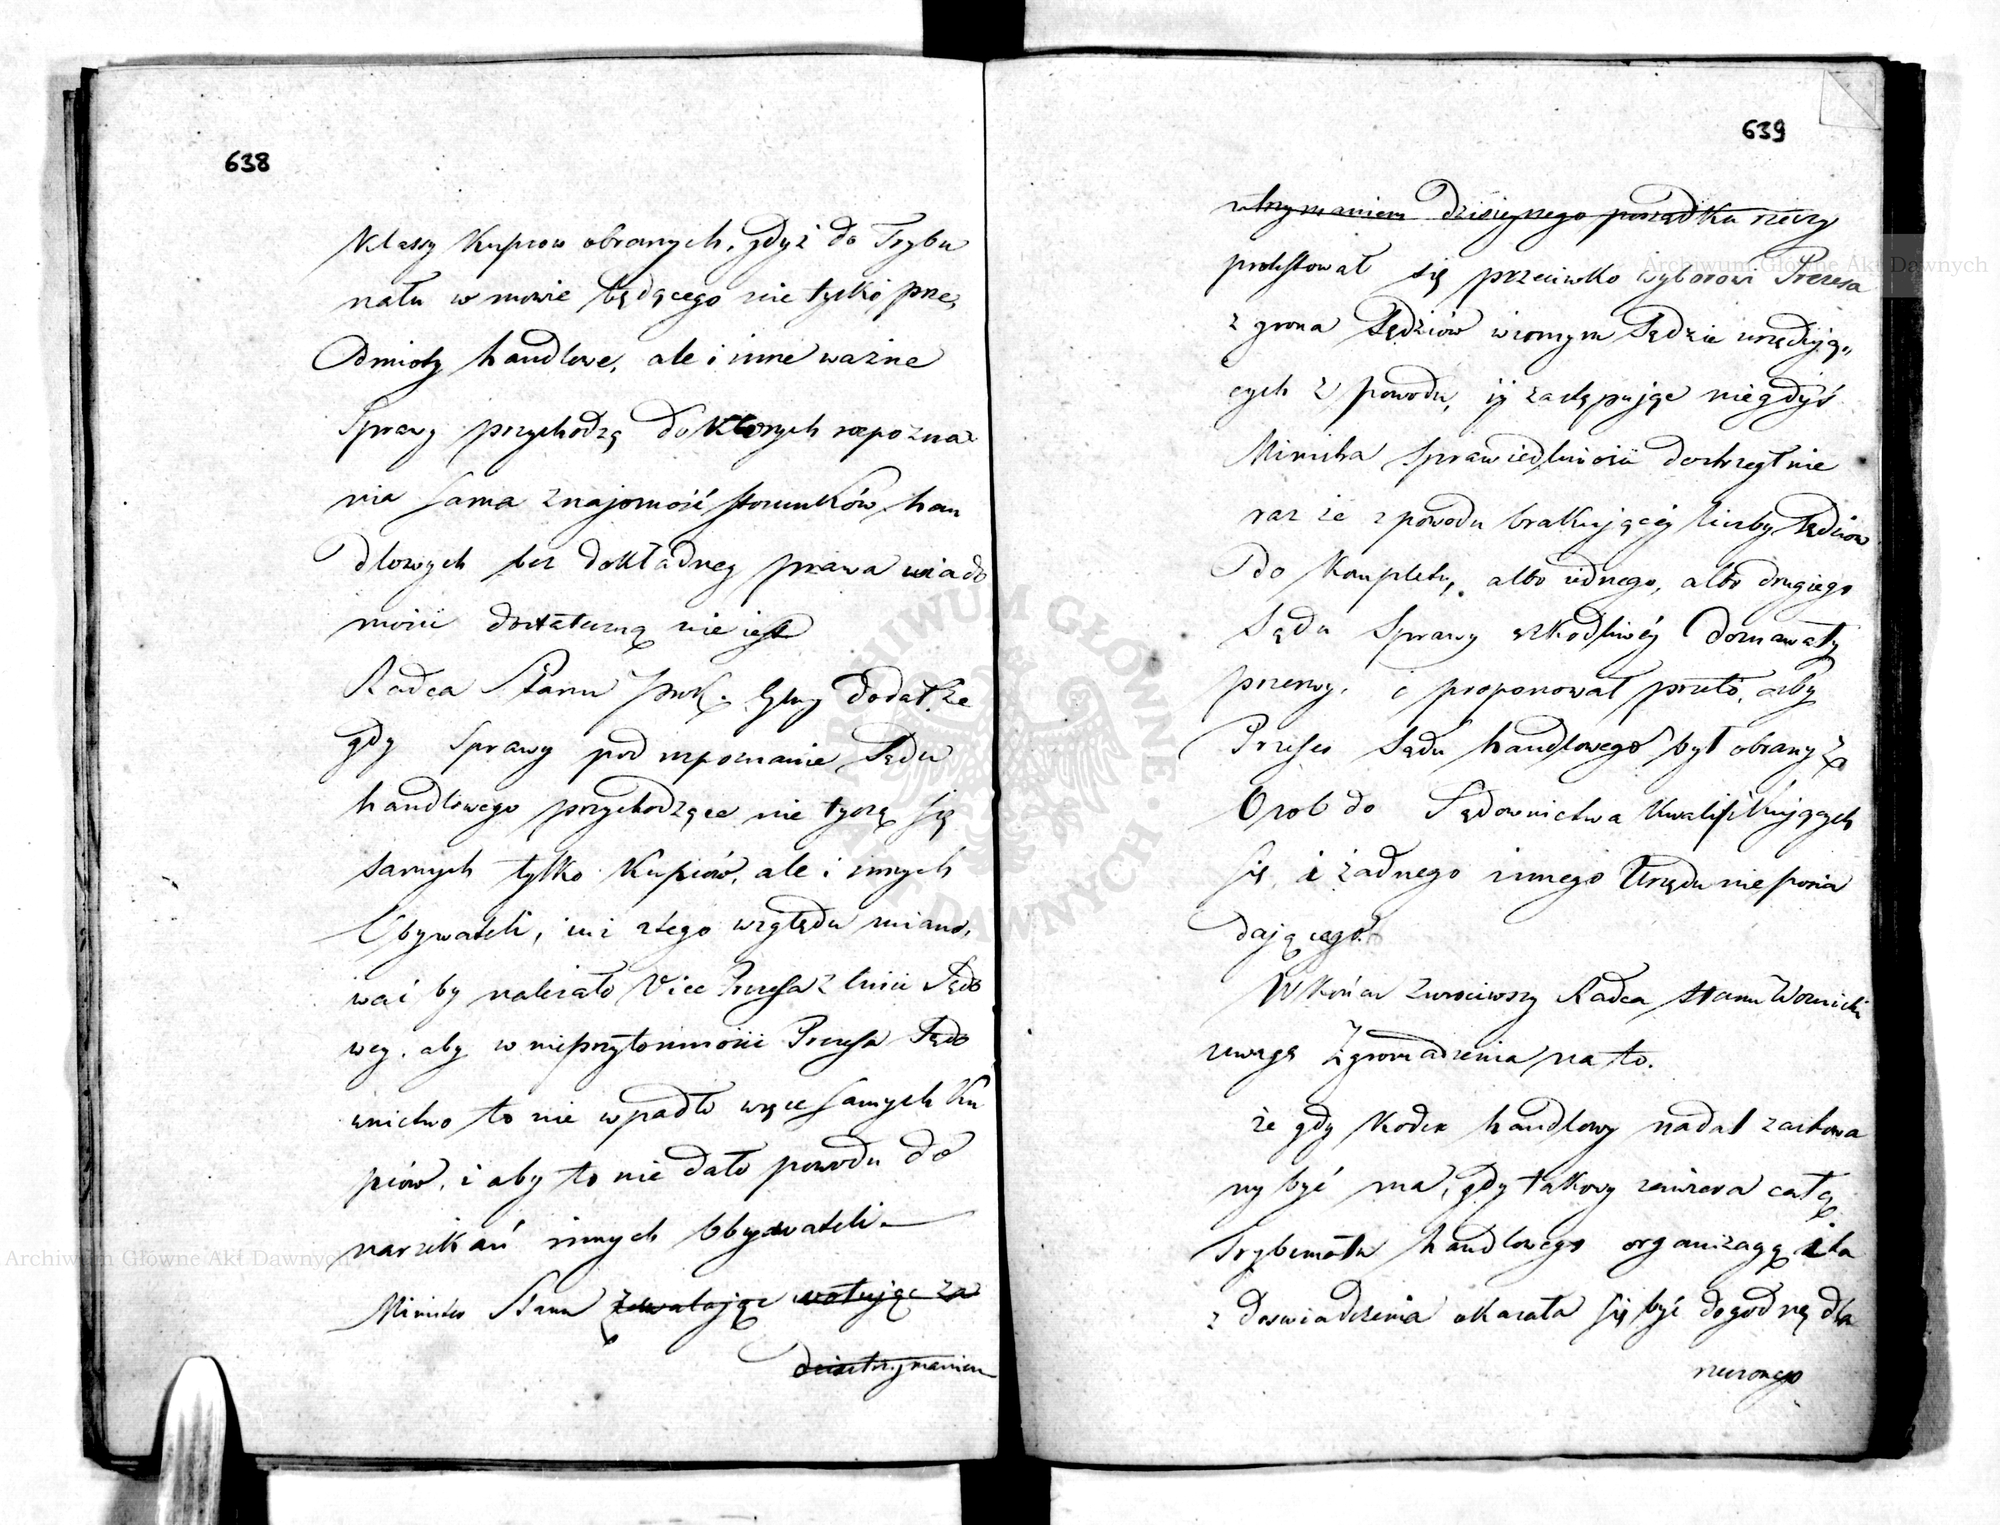 638
Klassy Kupców obranych, gdyż do Trybu
nału w mowie będącego nie tylko prze,
dmioty handlowe, ale i inne ważne
Sprawy przychodzą do których rozpozna
nia sama znajomość stosunków han
dlowych bez dokładney prawa wiado
mości dostateczną nie iest
Radca Stanu dodał, że
gdy Sprawy pod rozpoznanie Sądu
handlowego przychodzące nie tyczą się
samych tylko Kupców, ale i innych
Obywateli, iuż z tego względu miano,
wać by należało Vice Prezesa z linii Sądo
wey, aby w nieprzytomności Prezesa Sądo
wnictwo to nie wpadło w ręce samych Ku
pców, i aby to nie dało powodu do
narzekań innych Obywateli —
Minister Stanu zważając wotując za
utrzymaniem
639
utrzymaniem dzisieyszego porządku rzeczy
protestował się przeciwko wyborowi Prezesa
z grona Sędziów w innym Sądzie urzęduią„
cych z powodu, iż zastępując niegdyś
Ministra Sprawiedliwości dostrzegł nie
raz że z powodu brakuiącéy liczby Sędziów
do Kompletu, albo iednego, albo drugiego
Sądu Sprawy szkodliwéy doznawały
przerwy, i proponował przeto, aby
Prezes Sądu handlowego był obrany z
Osób do Sądownictwa kwalifikujących
się, i żadnego innego Urzędu nie posia
dającego.
W Końcu zwróciwszy Radca Stanu Woznicki
uwagę Zgromadzenia na to.
że gdy Kodex handlowy nadal zachowa
ny być ma, gdy takowy zawiera całą
Trybunału handlowego organizacyą i ta
z doswiadczenia okazała się być dogodną dla
rzeczonego